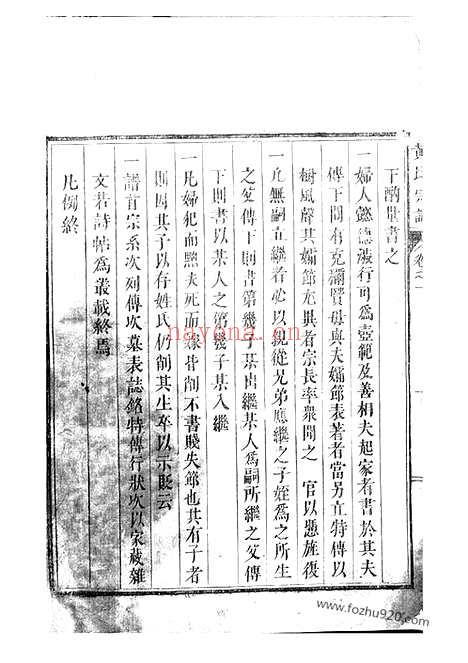 黃氏宗譜 卷之一
下酌量書之
一婦人懿德淑行可為壼範及善相夫起家者書於其夫
傳下間有克彌賢母與夫孀節表著者當另立特傳以
樹風聲其孀節尤異者宗長率衆聞之 官以慿旌復
一凡無嗣立繼者必以親從兄弟應繼之子姪為之所生
之父傳下則書第幾子某出繼某人為嗣所繼之父傳
下則書以某人之第幾子某入繼
一凡婦犯而黜夫死而嫁皆削不書賤失節也其有子者
則因其子以存姓氏仍削其生卒以示貶云
一譜首宗系次列傳次墓表誌銘特傳行狀次以家蔵雜
文若詩帖為叢載終焉
凡例終
nayona.cn
www.fozhu920.com